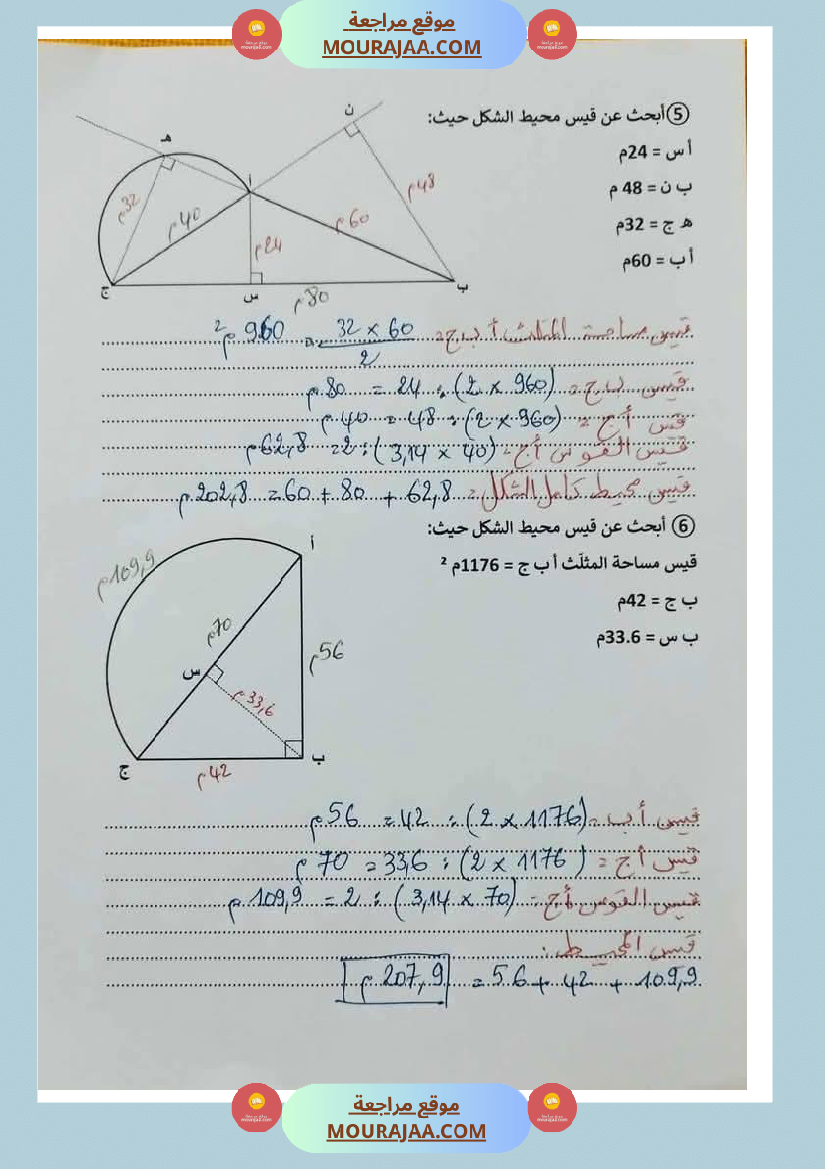 موقع مراجعة
MOURAJAA.COM
⑤ أبحث عن قيس محيط الشكل حيث:
أ س = 24م
ب ن = 48 م
هـ ج = 32م
أ ب = 60م
ن
هـ
أ
48م
32م
40م
60م
24م
ج
س
ب
80م
قيس مساحة المثلث أ ب ج = 60 × 32 / 2 = 960 م²
قيس ب ج = (960 × 2) : 24 = 80 م
قيس أ ج = (960 × 2) : 48 = 40 م
قيس القوس أ ج = (40 × 3,14) : 2 = 62,8 م
قيس محيط كامل الشكل = 62,8 + 80 + 60 = 202,8 م
⑥ أبحث عن قيس محيط الشكل حيث:
قيس مساحة المثلّث أ ب ج = 1176م ²
ب ج = 42م
ب س = 33.6م
أ
109,9م
70م
56م
س
33,6م
ب
ج
42م
قيس أ ب = (1176 × 2) : 42 = 56 م
قيس أ ج = (1176 × 2) : 33,6 = 70 م
قيس القوس أ ج = (70 × 3,14) : 2 = 109,9 م
قيس المحيط :
109,9 + 42 + 56 = 207,9 م
موقع مراجعة
MOURAJAA.COM